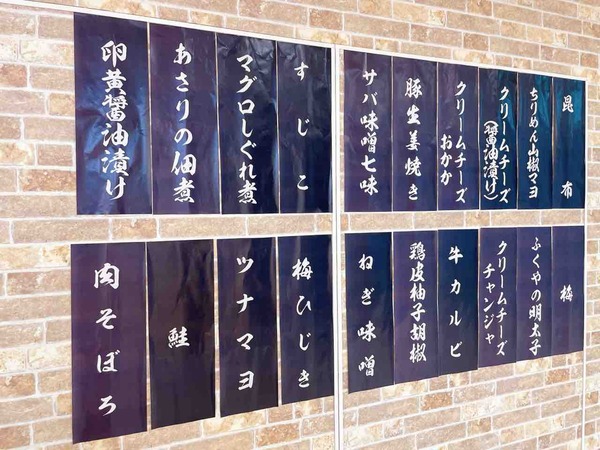 昆布
ちりめん山椒マヨ
クリームチーズ
(醤油漬け)
クリームチーズ
おかか
豚生姜焼き
サバ味噌七味
すじこ
マグロしぐれ煮
あさりの佃煮
卵黄醤油漬け
梅
ふくやの明太子
クリームチーズ
チャンジャ
牛カルビ
鶏皮柚子胡椒
ねぎ味噌
梅ひじき
ツナマヨ
鮭
肉そぼろ